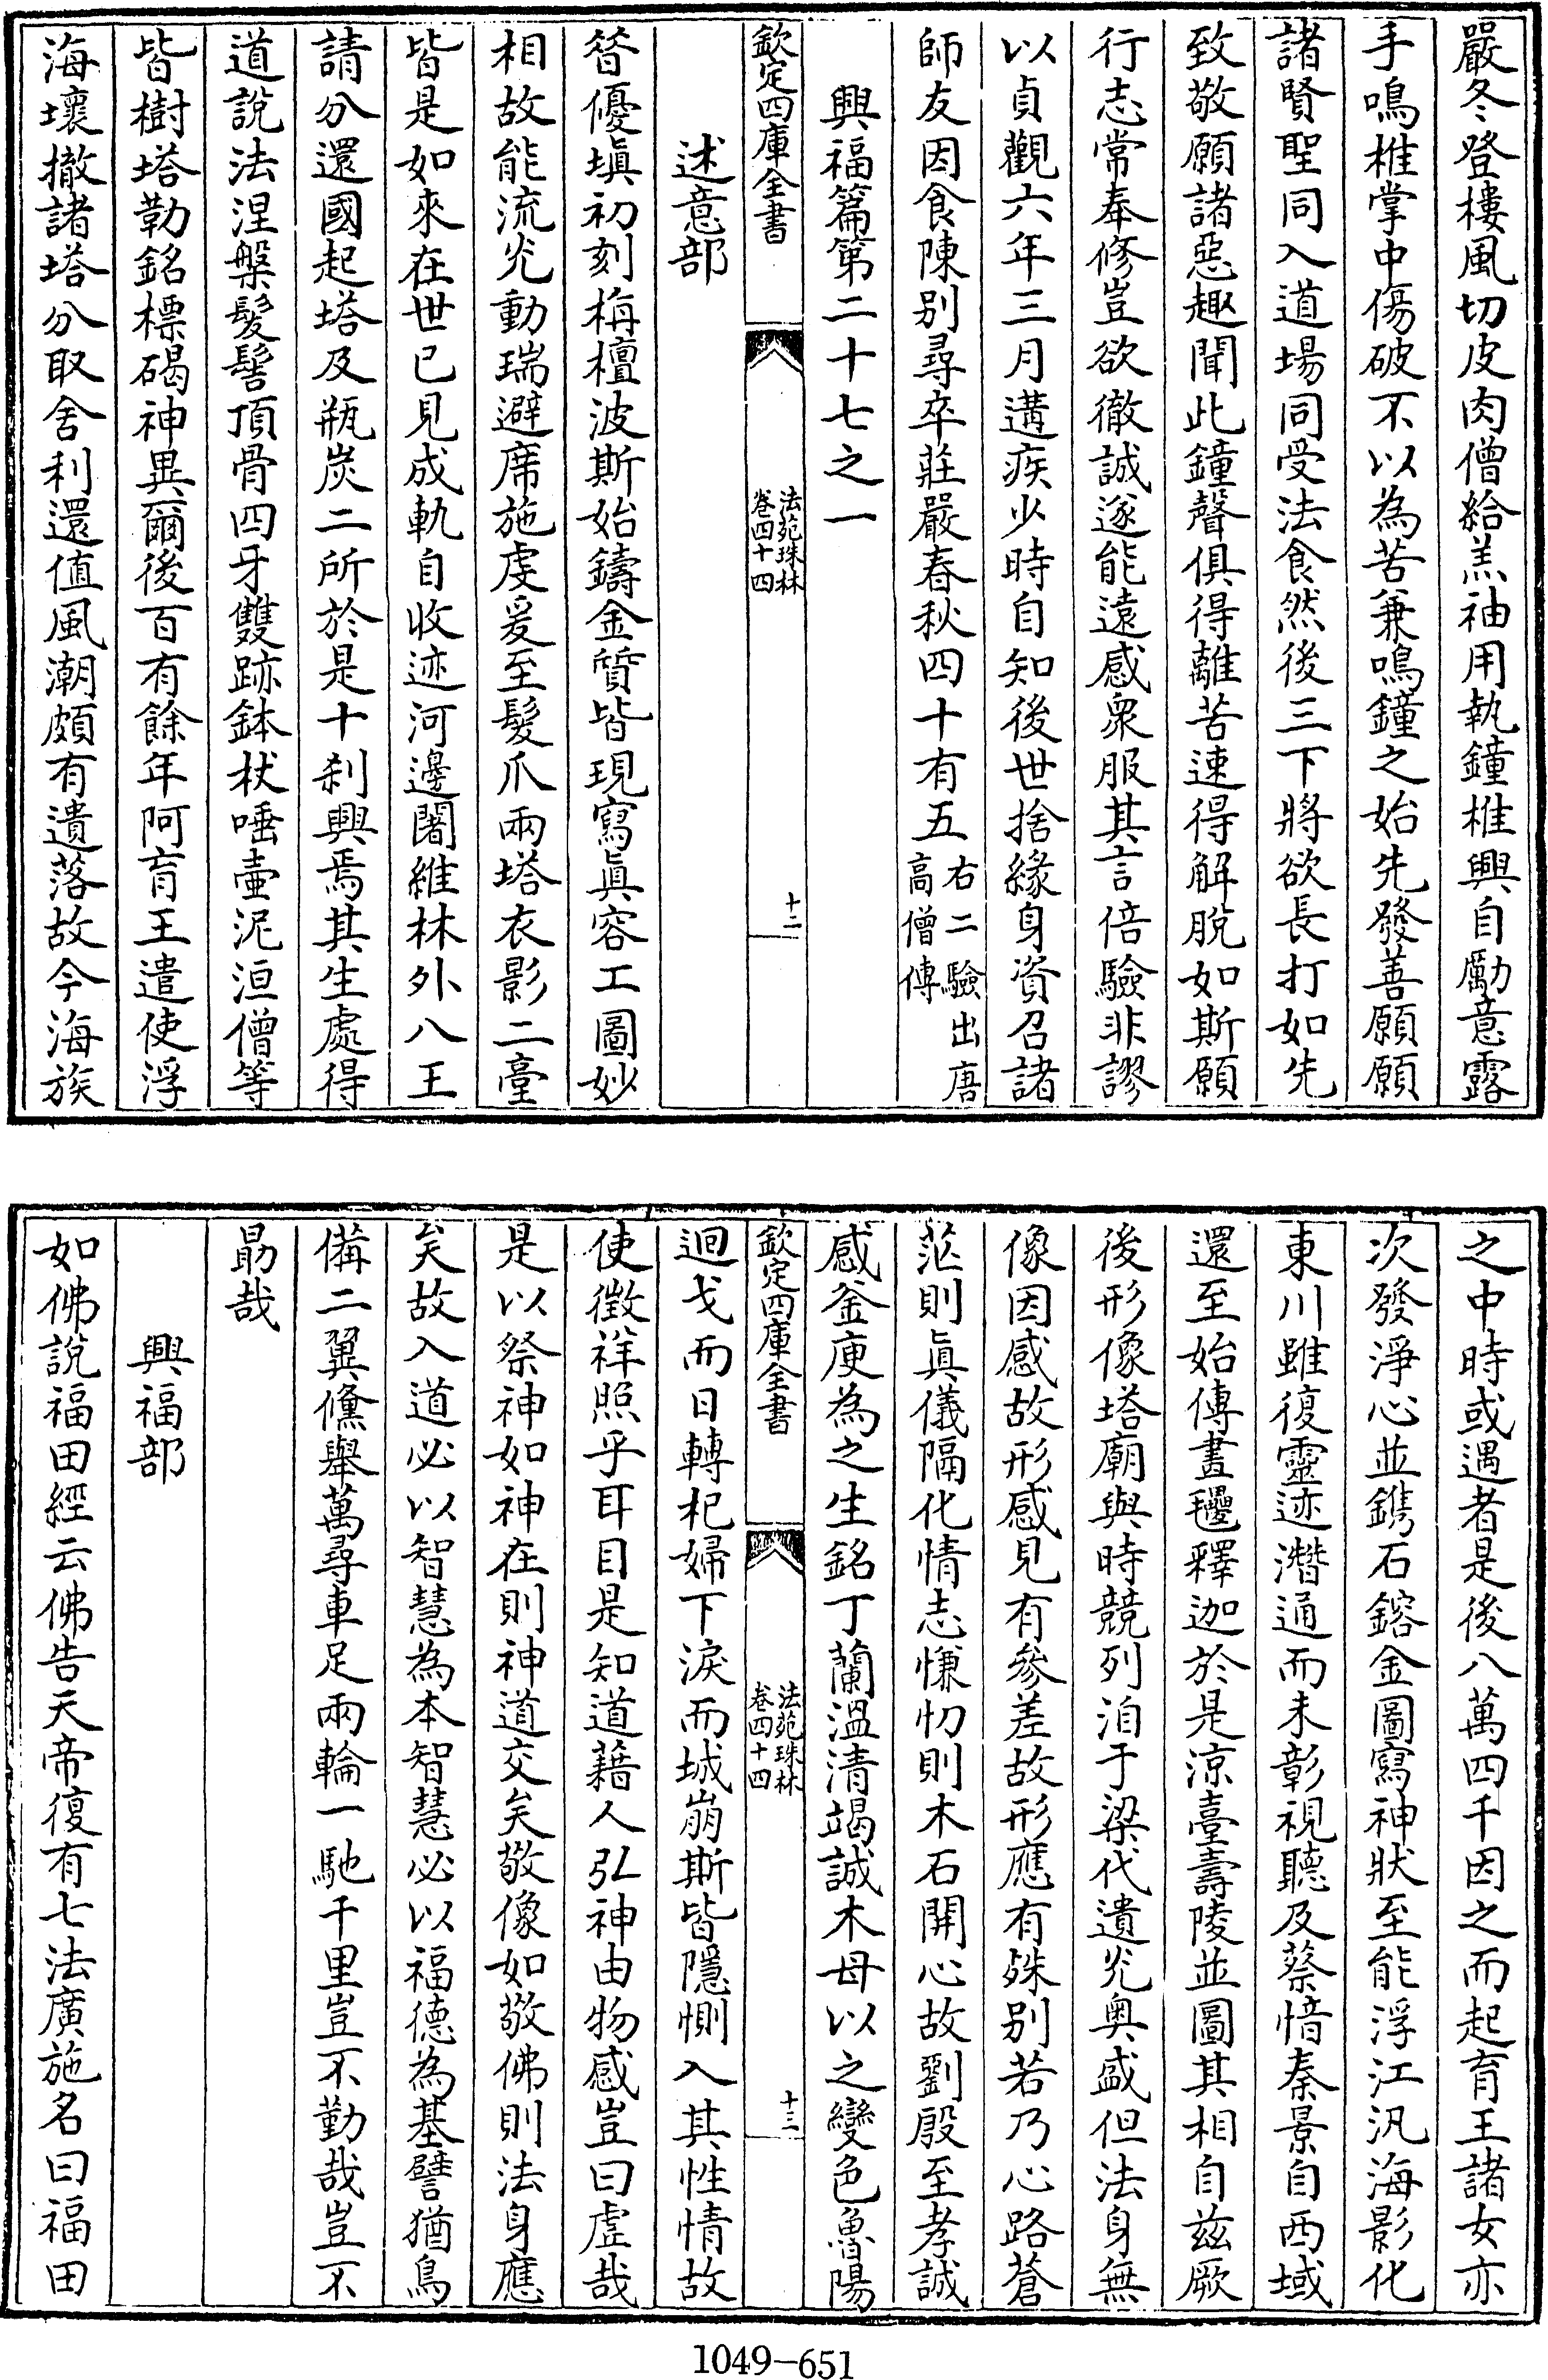 嚴冬登樓風切皮肉僧給羔袖用執鐘椎興自勵意露
手鳴椎掌中傷破不以為苦兼鳴鐘之始先發善願願
諸賢聖同入道場同受法食然後三下將欲長打如先
致敬願諸惡趣聞此鐘聲俱得離苦速得解脫如斯願
行志常奉修豈欲徹誠遂能遠感衆服其言倍驗非謬
以貞觀六年三月遘疾少時自知後世捨緣身資召諸
師友因食陳別尋卒莊嚴春秋四十有五右二驗出唐高僧傳
興福篇第二十七之一
欽定四庫全書
法苑珠林
卷四十四
十二
述意部
昝優塡初刻栴檀波斯始鑄金質皆現寫眞容工圖妙
相故能流光動瑞避席施虔爰至髮爪兩塔衣影二臺
皆是如來在世已見成軌自收迹河邊闍維林外八王
請分還國起塔及瓶炭二所於是十刹興焉其生處得
道說法涅槃髮髻頂骨四牙雙跡鉢杖唾壷泥洹僧等
皆樹塔勒銘標碣神異爾後百有餘年阿育王遣使浮
海壞撤諸塔分取舍利還值風潮頗有遺落故今海族
之中時或遇者是後八萬四千因之而起育王諸女亦
次發淨心並鐫石鎔金圖寫神狀至能浮江汎海影化
東川雖復靈迹潛通而未彰視聽及蔡愔秦景自西域
還至始傳畫㲲釋迦於是凉臺壽陵並圖其相自兹厥
後形像塔廟與時競列洎于梁代遺光奥盛但法身無
像因感故形感見有參差故形應有殊別若乃心路蒼
茫則眞儀隔化情志慊切則木石開心故劉殷至孝誠
感釜庾為之生銘丁蘭溫凊竭誠木母以之變色魯陽
欽定四庫全書
法苑珠林
卷四十四
十三
迴戈而日轉杞婦下淚而城崩斯皆隱惻入其性情故
使徵祥照乎耳目是知道藉人弘神由物感豈曰虛哉
是以祭神如神在則神道交矣敬像如敬佛則法身應
矣故入道必以智慧為本智慧必以福德為基譬猶鳥
備二翼儵舉萬尋車足兩輪一馳千里豈不勤哉豈不
勗哉
興福部
如佛說福田經云佛告天帝復有七法廣施名曰福田
1049-651